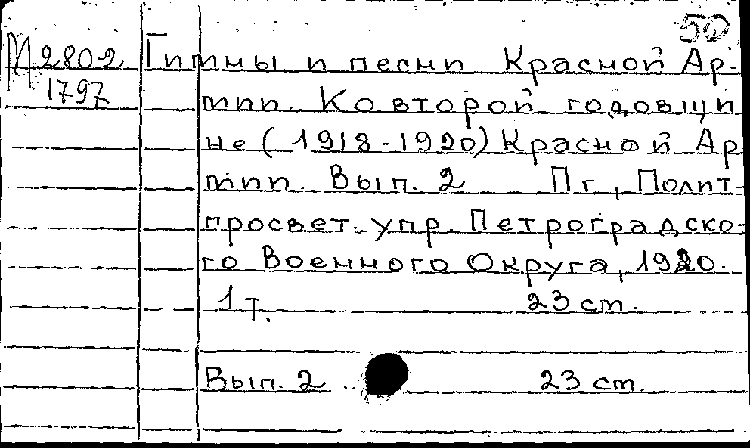 50
М 2802 Гимны и песни Красной Ар-
1797 мии. Ко второй годовщи
не (1918-1920) Красной Ар
мии. Вып. 2 Пг, Полит-
просвет. упр. Петроградско-
го Военного Округа, 1920.
1 т. 23 ст.
Вып. 2 .. 23 ст.